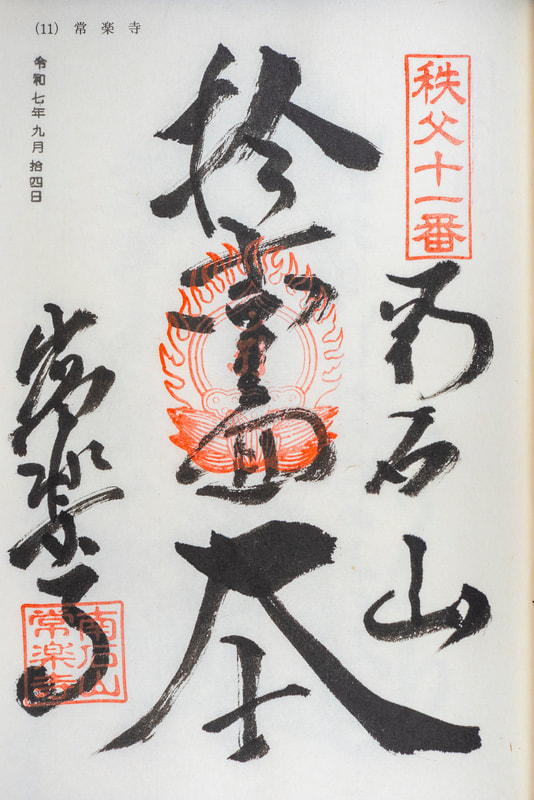 (11) 常楽寺
令和七年九月拾四日
秩父十一番
南石山
拾壱面大士
常楽寺
南石山
常楽寺